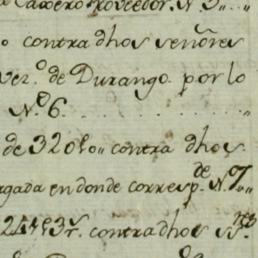 Caxero Proveedor. N 5....
o contra dhos señores
Vez.º de Durango por lo
N.º 6. . . . . . . . .
de 320 ps,, contra dhos
rgada en donde corresp.de N.º 7,,
contra dhos S.res